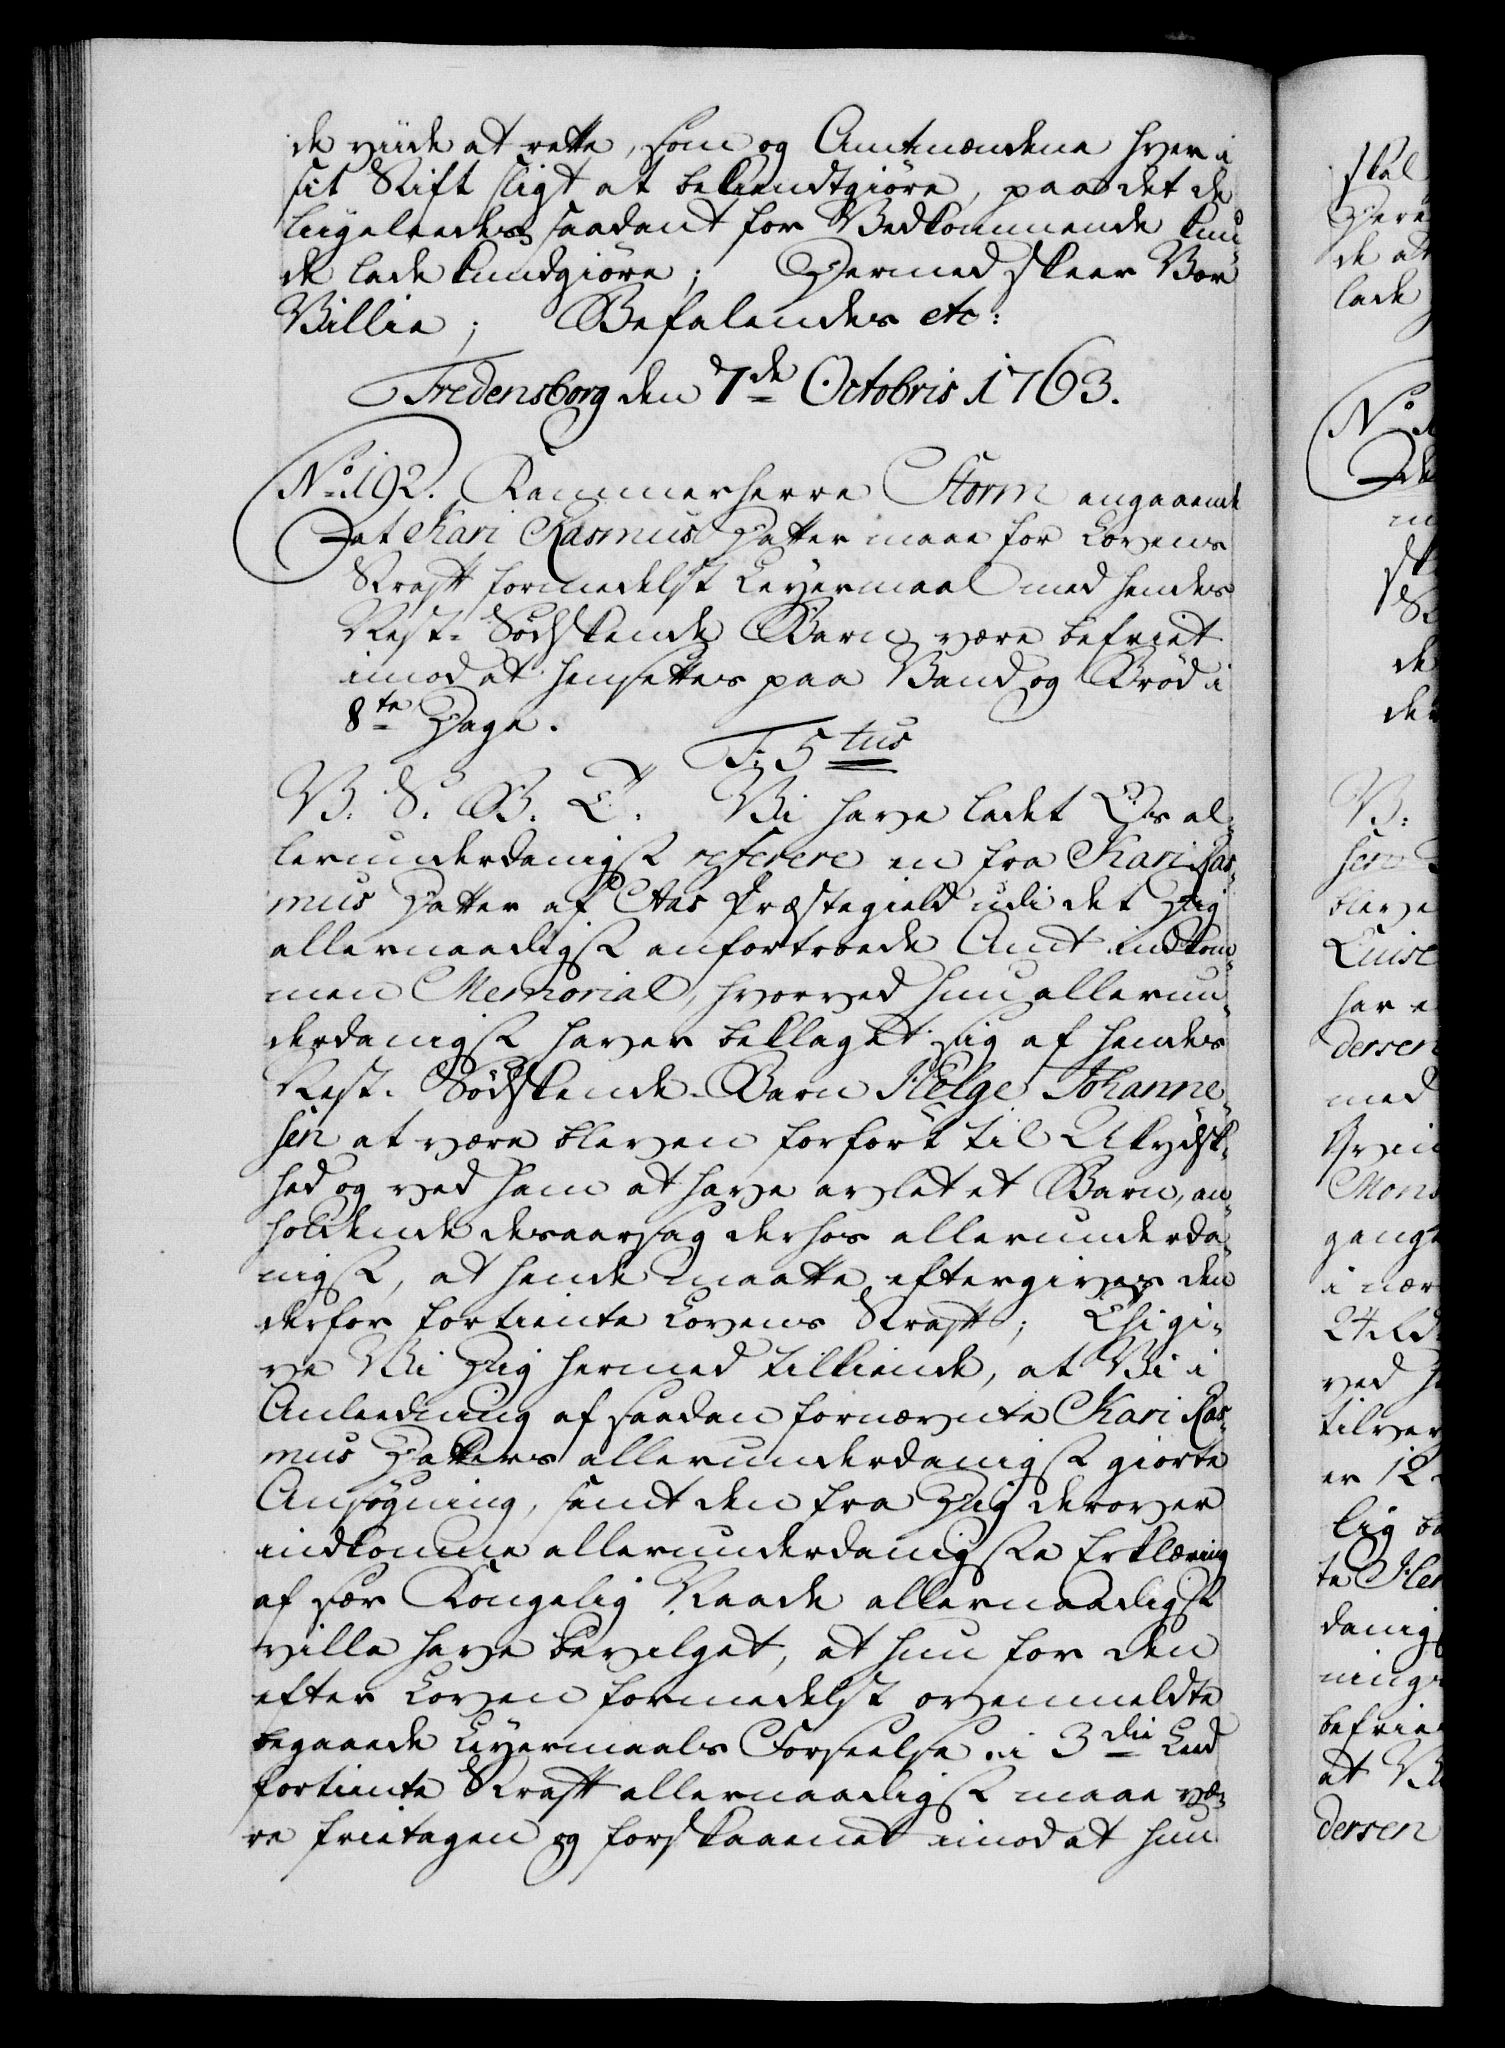 de viide at rette, som og Amtmændene hver i
sit Stift sligt at bekiendtgiøre, paa det de
liigeleedes saadant for Vedkommende kun¬
de lade kundgiøre; Hermed skeer Vor
Villie; Befalendes etc:
Fredensborg den 7de Octobris 1763.
No. 192. Kammerherre Storm angaaende
at Kari Rasmus Datter maae for Lovens
Straff formedelst Leyermaal med hendes
Nest-Södskende Barn være befriet
imod at hensettes paa Vand og Brød i
8te Dage.
F: 5tus
V. S. B. T. Vi have ladet Os al¬
lerunderdanigst referere en fra Kari Ras¬
mus Datter af Aas Præstegield udi det Dig
allernaadigst anfortroede Amt indkom¬
men Memorial, hvorved hun allerun¬
derdanigst haver beklaget sig af hendes
Nest-Södskende-Barn Helge Johanne¬
sen at være bleven forført til Ukydsk¬
hed og ved ham at have avlet et Barn, an¬
holdende desaarsag derhos allerunderda¬
nigst, at hende maatte eftergives den
derfor fortiente Lovens Straff; Thi gi¬
ve Vi Dig hermed tilkiende, at Vi i
Anleedning af saadan fornævnte Kari Ras¬
mus Datters allerunderdanigst giorte
Ansøgning, samt den fra Dig derover
indkomne allerunderdanigste Erklæring
af sær Kongelig Naade allernaadigst
ville have bevilget, at hun for den
efter Loven formedelst ovenmeldte
begaaede Leyermaals Forseelse i 3die Leed
fortiente Straff allernaadigst maae væ¬
re frietagen og forskaanet imod at hun